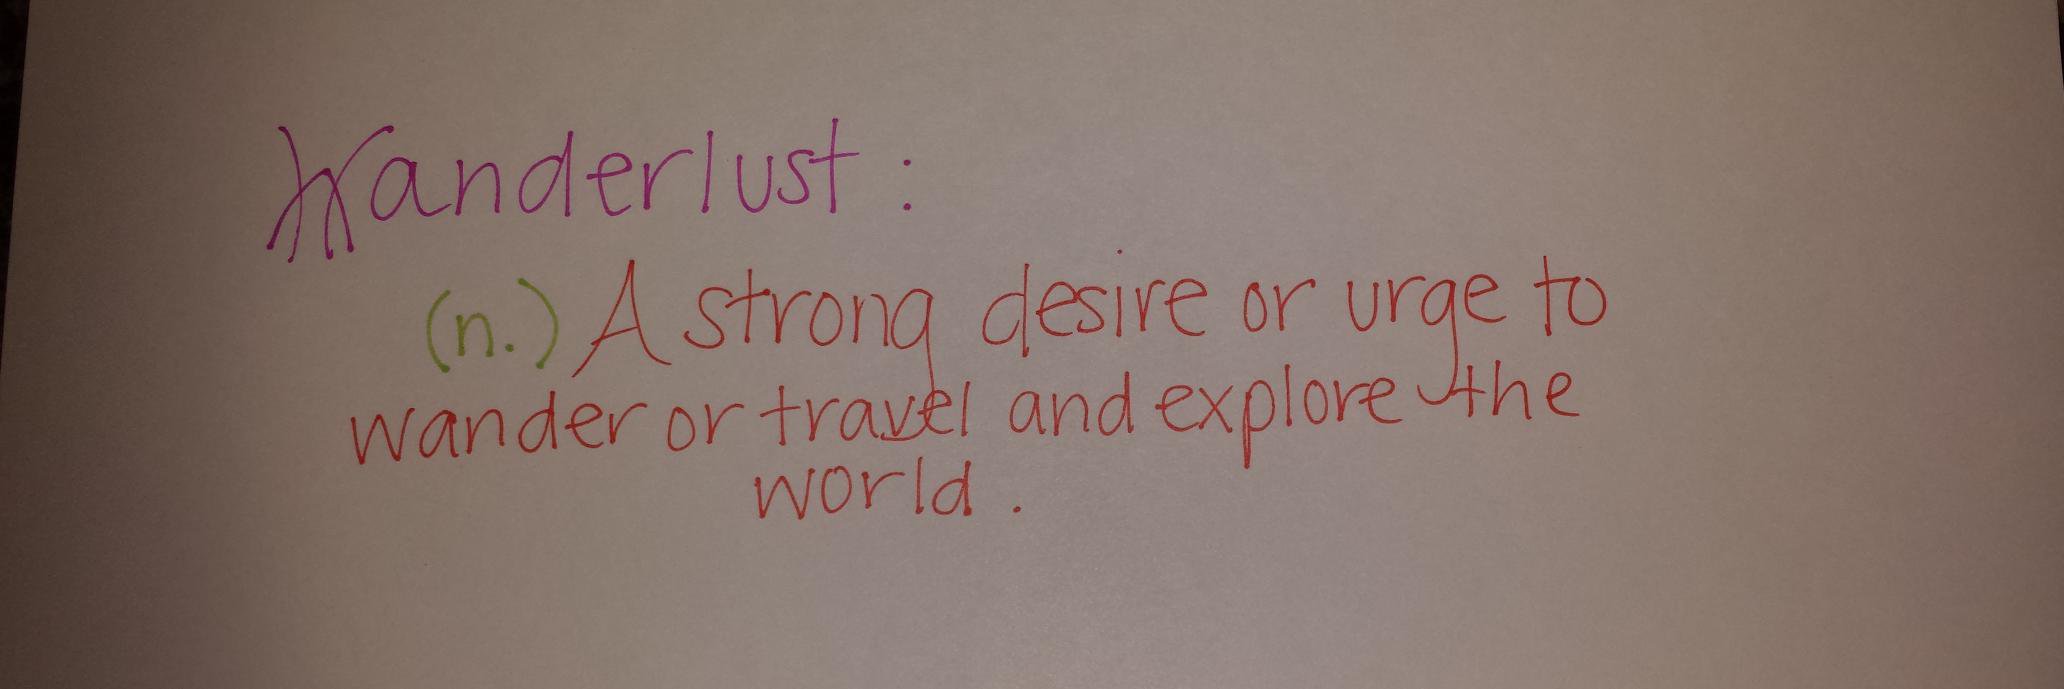 Wanderlust :
(n.) A strong desire or urge to
wander or travel and explore the
world.